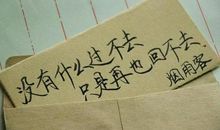 没有什么过不去
只是再也回不去
烟雨客